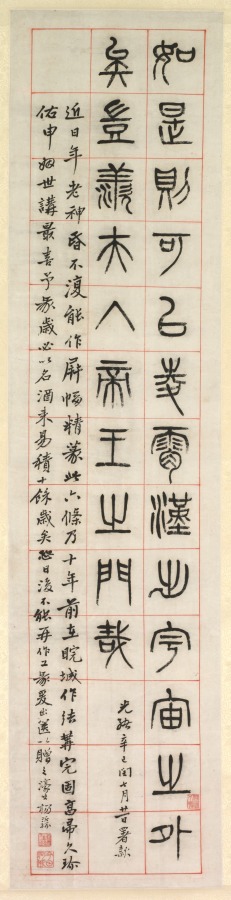 如是則可㠯夌霄漢出宇宙之外
矣豈羨夫入帝王之門哉
光緒辛巳閏七月廿日署款
近日年老神昏不復能作屏幅精篆此六條乃十年前在皖城作法冓完固高帚久珍
佑申姻世講最喜予篆歲必以名酒來易積十餘歲矣恐日後不能再作工篆爰出以贈之濠叟楊沂孫